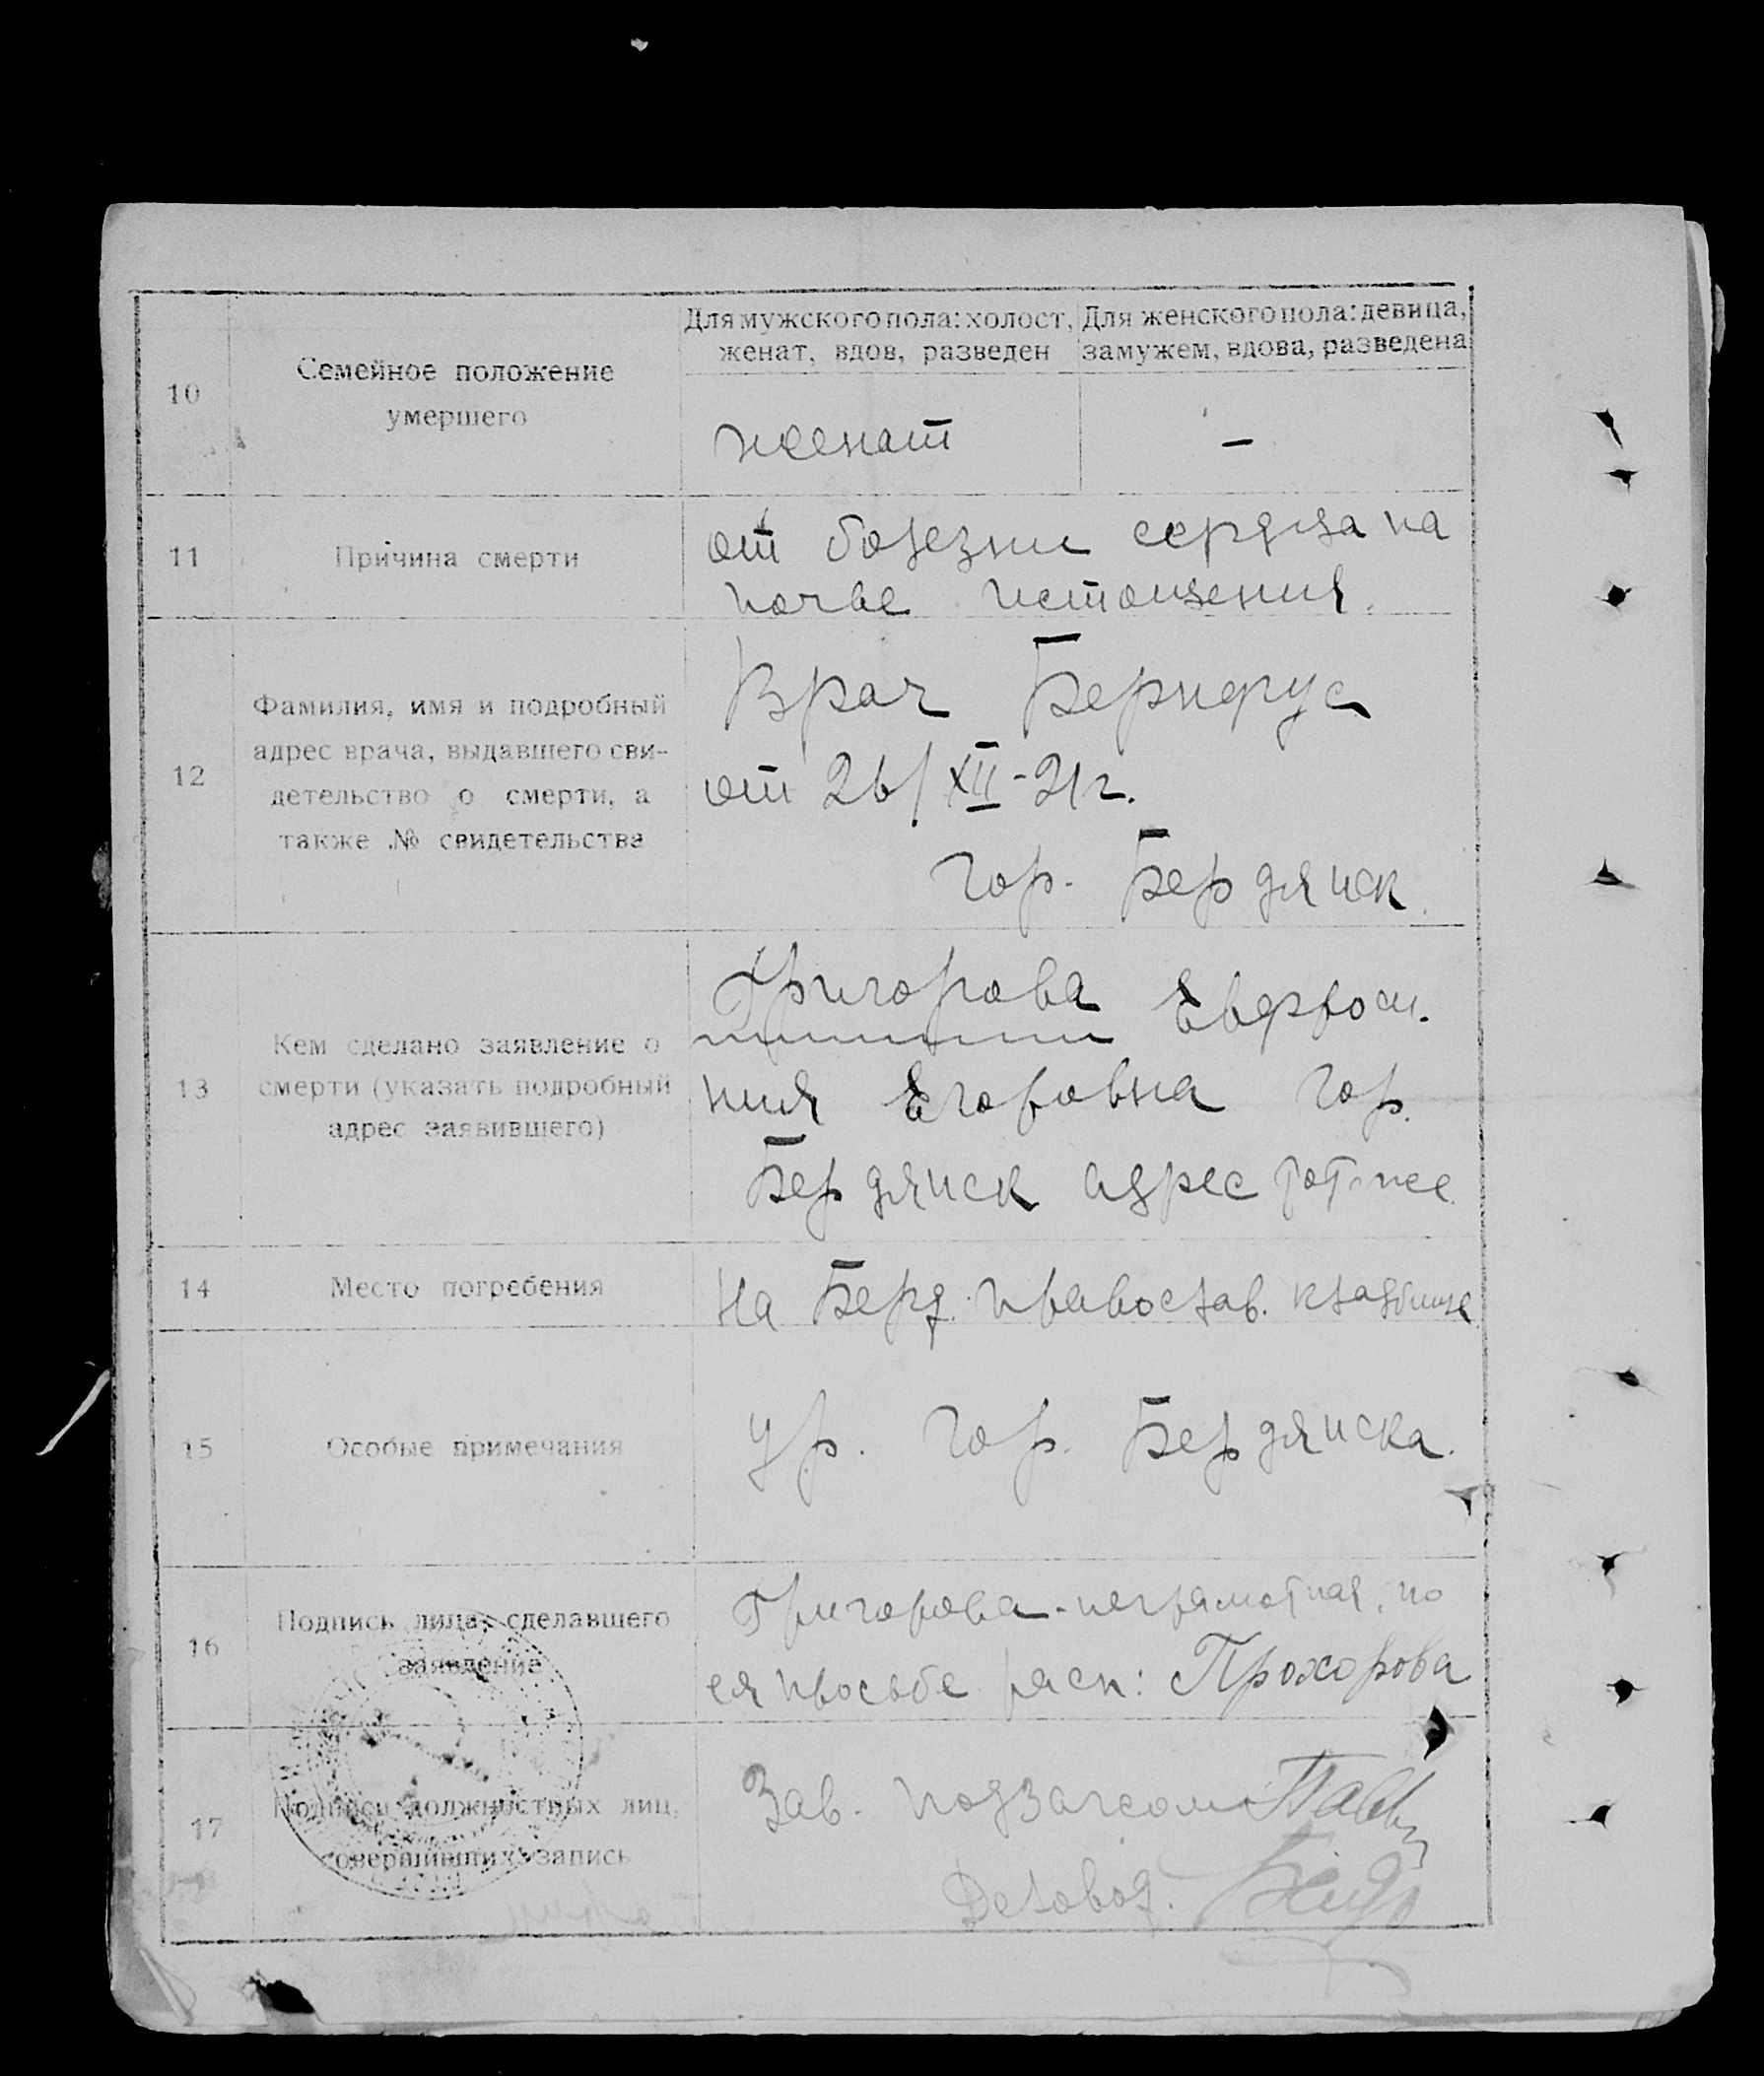 10
Семейное положение
умершего
Для мужского пола: холост,
женат, вдов, разведен
Для женского пола: девица,
замужем, вдова, разведена
женат
–
11
Причина смерти
от болезни сердца на
почве истощения.
12
Фамилия, имя и подробный
адрес врача, выдавшего сви-
детельство о смерти, а
также № свидетельства
Врач
от 26/XII-21г.
гор. Бердянск.
13
Кем сделано заявление о
смерти (указать подробный
адрес заявившего)
Григорова Евфроси-
ния Егоровна гор.
Бердянск адрес тот-же.
14
Место погребения
На Берд. православ. кладбище
15
Особые примечания
Ур. гор. Бердянска.
16
Подпись лица, сделавшего
заявление
Григорова - неграмотная, по
ея просьбе расп: Прохорова
17
Подписи должностных лиц,
совершивших запись
Зав. подзагсом
Деловод.